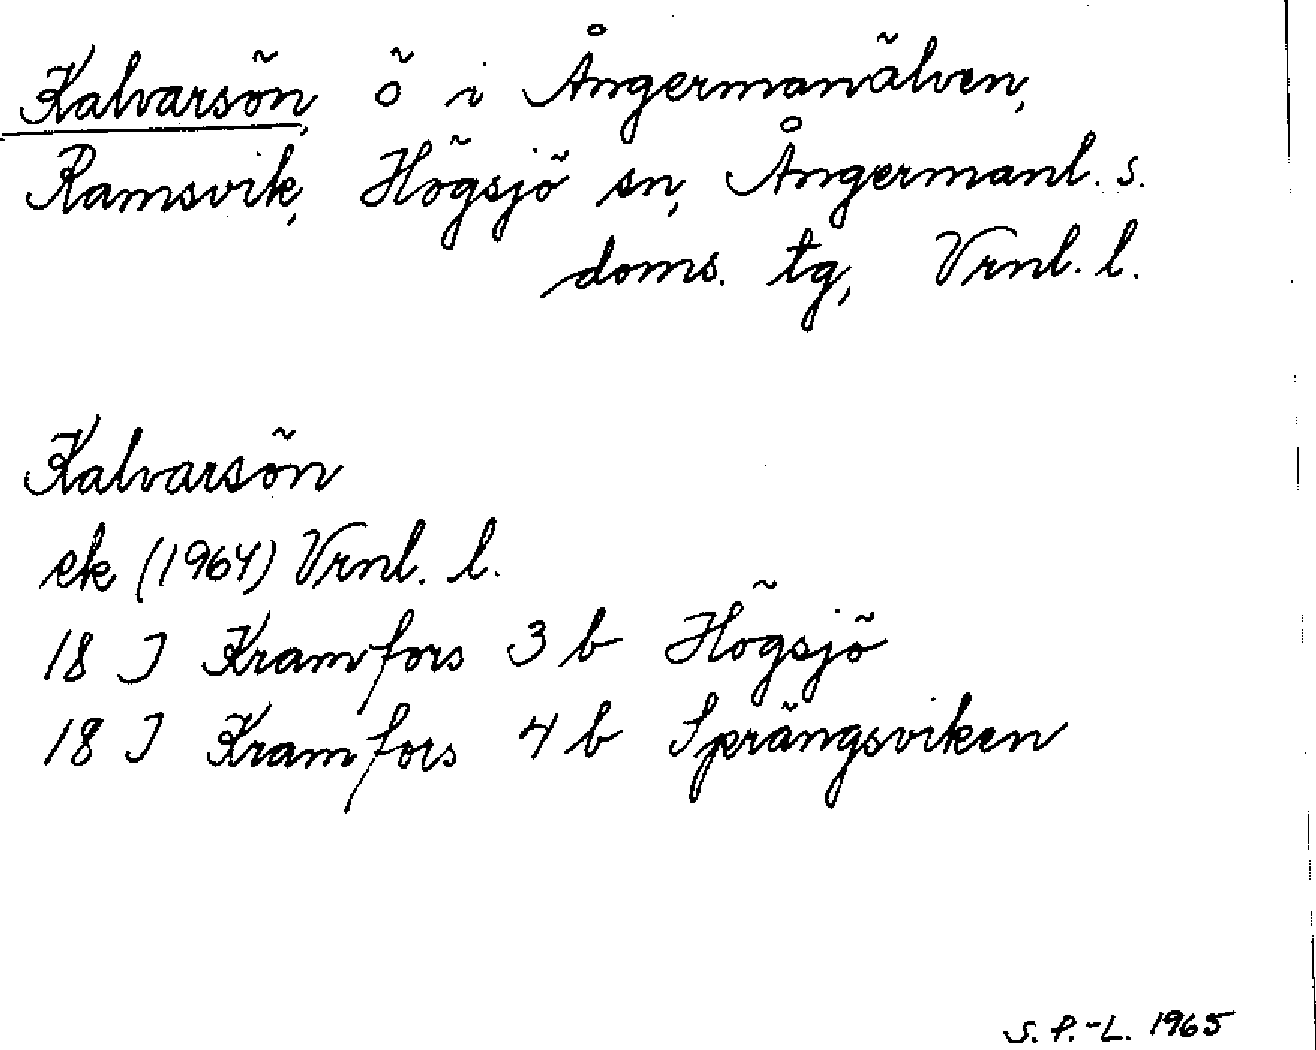 Kalvarsön, ö i Ångermanälven,
Ramsvik, Högsjö sn, Ångermanl. s.
doms. tg, Vrnl. l.
Kalvarsön
ek (1964) Vrnl. l.
18 I Kramfors 3 b Högsjö
18 I Kramfors 4 b Sprängsviken
S. P.-L. 1965